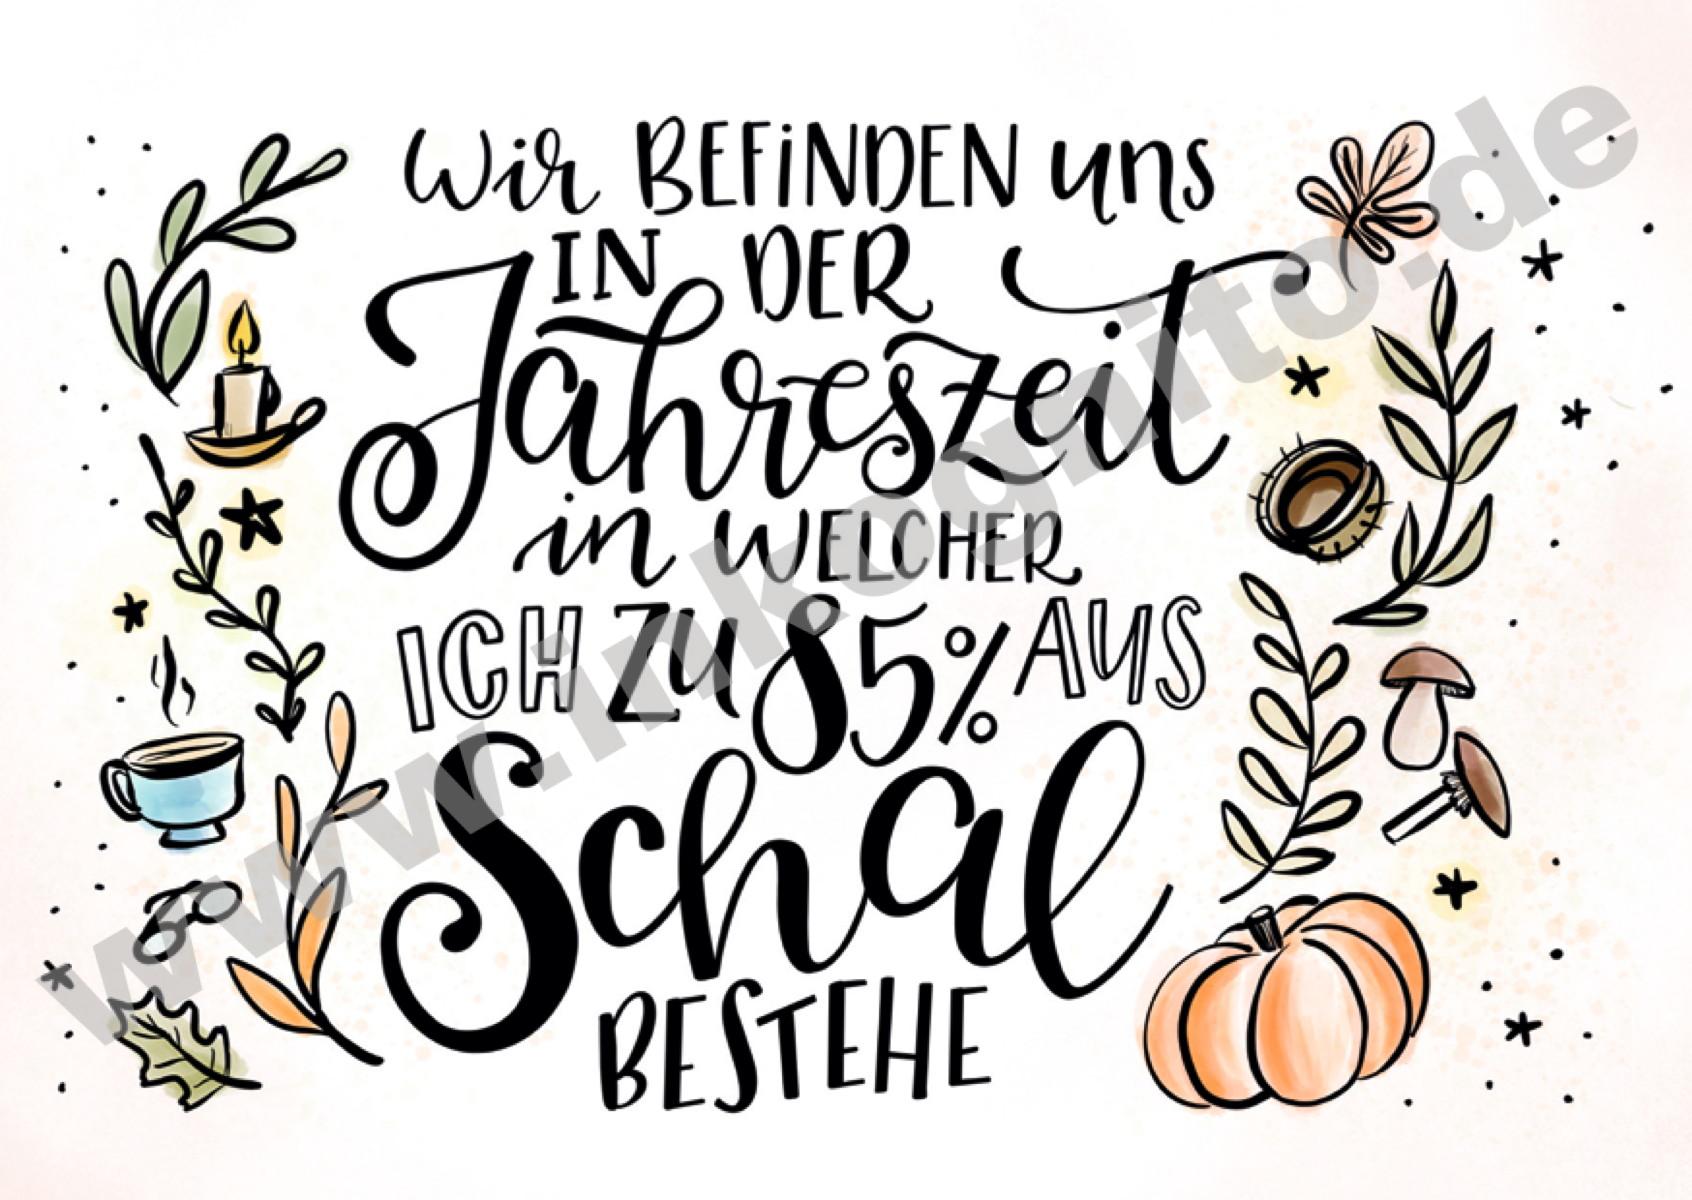 Wir BEFiNDEN uns
IN DER
Jahreszeit
in WELCHER
ICH ZU 85% AUS
Schal
BESTEHE
www.inkognito.de